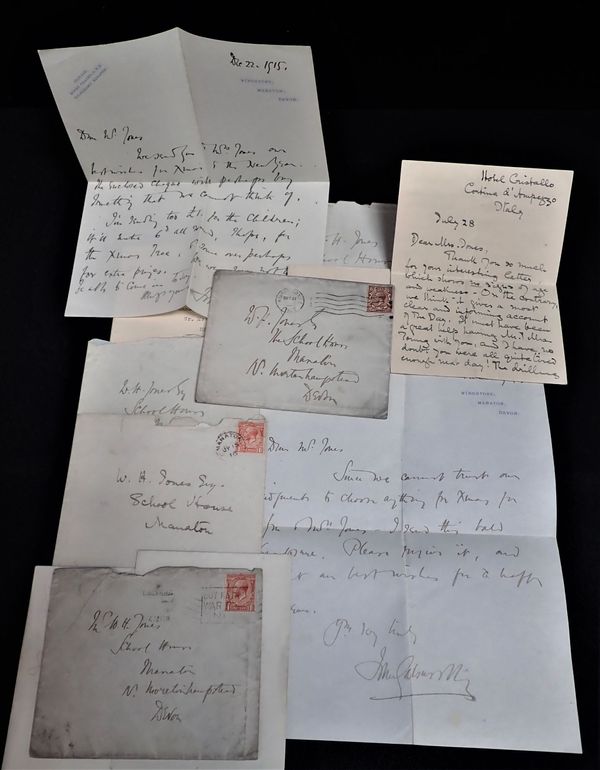 Dec 22. 1915.
WINGSTONE,
MANATON,
DEVON.
Dear Mr Jones
We send you & Mrs Jones our
best wishes for Xmas & the New Year.
The enclosed cheque will perhaps buy
something that we cannot think of.
I'm sending too £1. for the children;
it'll make 6d all round, I hope, for
the Xmas Tree,
for extra prizes.
Hotel Cristallo
Cortina d'Ampezzo
Italy
July 28
Dear Mrs. Jones,
Thank you so much
for your interesting letter
which shows no signs of age
and weakness. On the contrary,
we think it gives a most
clear and informing account
of the Day. It must have been
a great help having Mr. & Mrs.
Young with you, and I have no
doubt you were all quite tired
enough next day! The drilling
H. Jones
School House
W. H. Jones Esq
The School House
Manaton
Nr Moretonhampstead
Devon
W. H. Jones Esq
School House
MANATON
W. H. Jones Esq.
School House
Manaton
WINGSTONE,
MANATON,
DEVON.
Dear Mr Jones
Since we cannot trust our
judgments to choose anything for Xmas for
you & Mrs Jones I send this bald
Please forgive it, and
our best wishes for a happy
Yrs very truly
John Galsworthy
BUY
WAR
Mr W. H. Jones
School House
Manaton
Nr Moretonhampstead
Devon